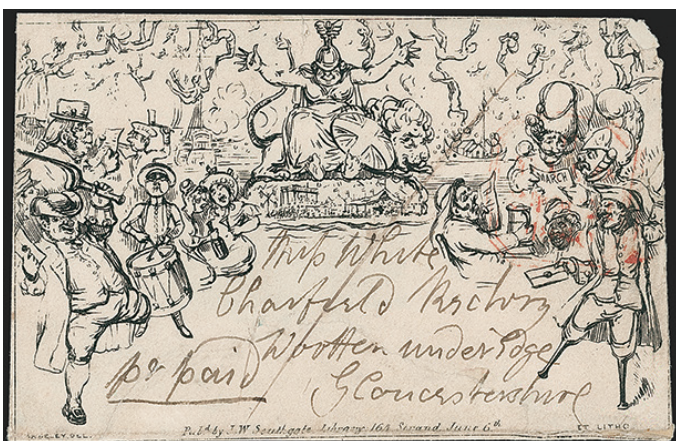 MARCH
Miss White
Charfield Rectory
Wootten under Edge
pr paid
Gloucestershire
Pubd. by J.W. Southgate Library, 164 Strand, June 6th
ET LITHO